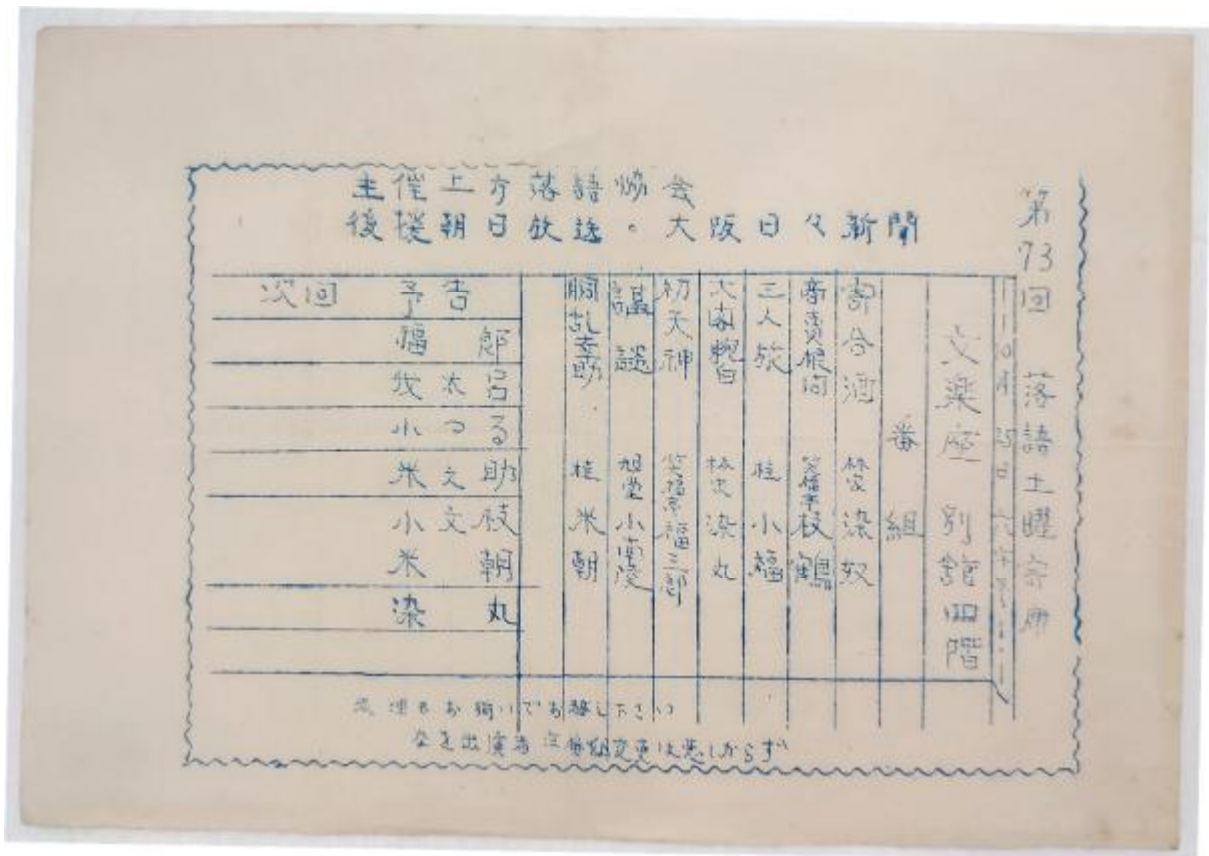 主催上方落語協会
後援朝日放送。大阪日々新聞
第73回 落語土曜寄席
文楽座 別館四階
番組
寄合酒 林家染奴
商売根問 笑福亭枝鶴
三人旅 桂小福
林家染丸
初天神 笑福亭福三郎
講談 旭堂小南陵
胴乱幸助 桂米朝
次回 予告
福郎
我太呂
小つる
米之助
小文枝
米朝
染丸
お揃いでお越し下さい
なを出演者 番組変更は悪しからず